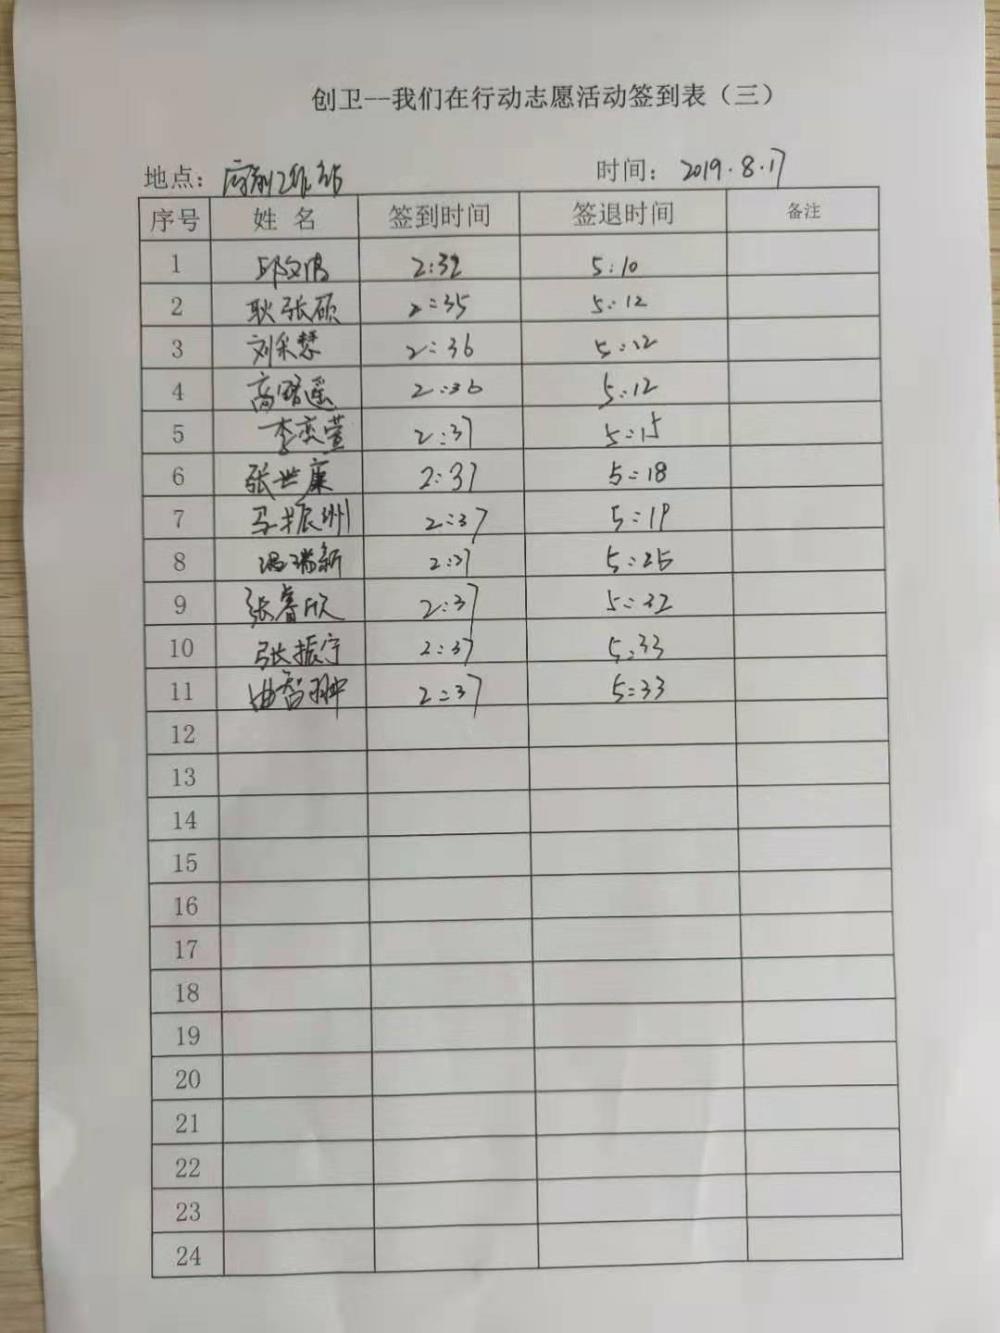 创卫--我们在行动志愿活动签到表（三）
地点：府前工作站 时间：2019.8.17
序号 姓名 签到时间 签退时间 备注
1 邱文鸿 2:32 5:10
2 耿张硕 2:35 5:12
3 刘采慧 2:36 5:12
4 高路遥 2:36 5:12
5 李奕萱 2:37 5:15
6 张世康 2:37 5:18
7 马振州 2:37 5:19
8 温瑞新 2:37 5:25
9 张睿欣 2:37 5:32
10 张振宁 2:37 5:33
11 曲智翀 2:37 5:33
12
13
14
15
16
17
18
19
20
21
22
23
24